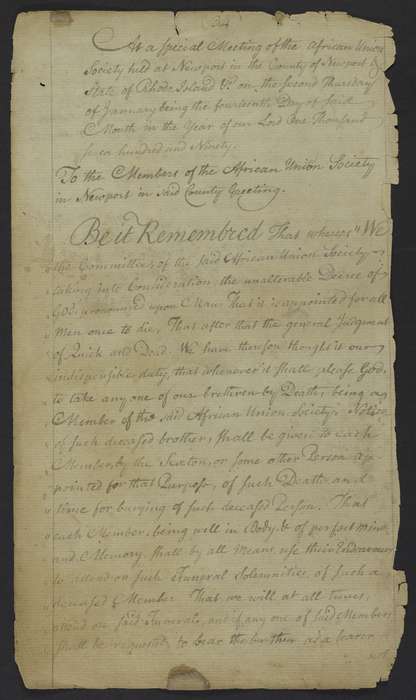 (34)
At a Special Meeting of the African Union
Society held at Newport in the County of Newport &
State of Rhode Island &c on the Second Thursday
of January being the fourteenth Day of Said
Month in the Year of our Lord One Thousand
Seven hundred and Ninety.
To the Members of the African Union Society
in Newport in Said County Greeting.
Be it Remembred That whereas We
the Committee of the Said African Union Society
taking into Consideration the unalterable Decree of
God, pronounced upon Man, That it is appointed for all
Men once to die, That after that the general Judgment
of Quick and Dead. We have therefore thought it our
indispensible duty, that whenever it shall please God,
to take any one of our bretheren by Death, being a
Member of the said African Union Society, Notice
of such deceased brother, shall be given to each
Member by the Sexton, or some other Person ap-
pointed for that Purpose, of such Death and
time for burying of such deceased Person. That
each Member, being well in Body, & of perfect Mind
and Memory, shall by all means, use their Endeavours
to attend on such Funeral Solemnities, of such a
deceased Member. That we will at all times,
attend on said Funerals, and if any one of said Members
shall be requested, to bear the burthen as a bearer